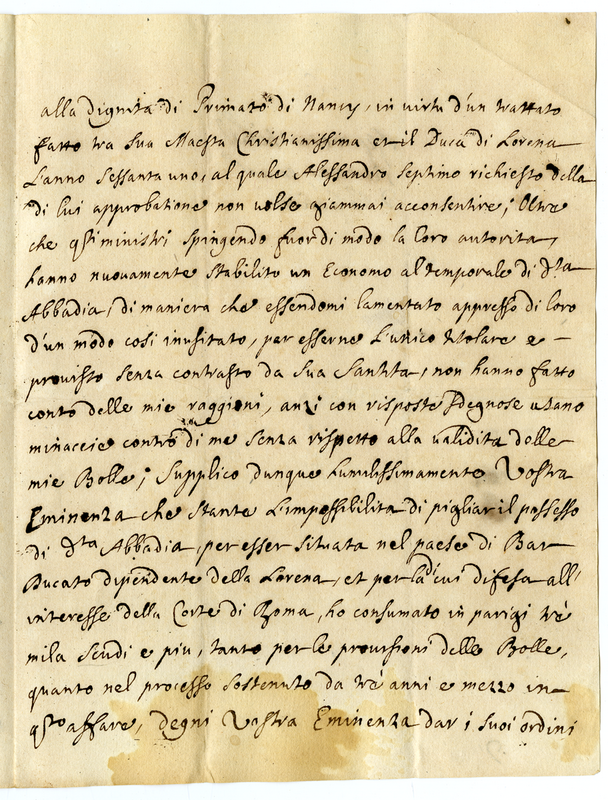 alla dignita di Primato di Nancy, in virtu d'un trattato
fatto tra sua Maesta Christianissima et il Duca di Lorena
L'anno sessanta uno, al quale Alessandro septimo richiesto della
di lui approbatione non volse giammai acconsentire; Oltre
che qsti ministri spingendo fuor di modo la loro autorita,
hanno nuovamente stabilito un Economo al temporale di dta
Abbadia, di maniera che essendomi lamentato appresso di loro
d'un modo cosi inusitato, per esserne L'unico titolare e -
provisto senza contrasto da sua santita, non hanno fatto
conto delle mie raggioni, anzi con risposte sdegnose usano
minaccie contro di me senza rispetto alla validita delle
mie Bolle; supplico dunque humilissimamente Vostra
Eminenza che stante L'impossibilita di pigliar il possesso
di dta Abbadia, per esser situata nel paese di Bar
Ducato dipendente della Lorena, et per la di cui difesa all'
interesse della Corte di Roma, ho consumato in parigi tre
mila scudi e piu, tanto per le provisioni delle Bolle,
quanto nel processo sostenuto da tre anni e mezzo in
qsto affare, degni Vostra Eminenza dar i suoi ordini